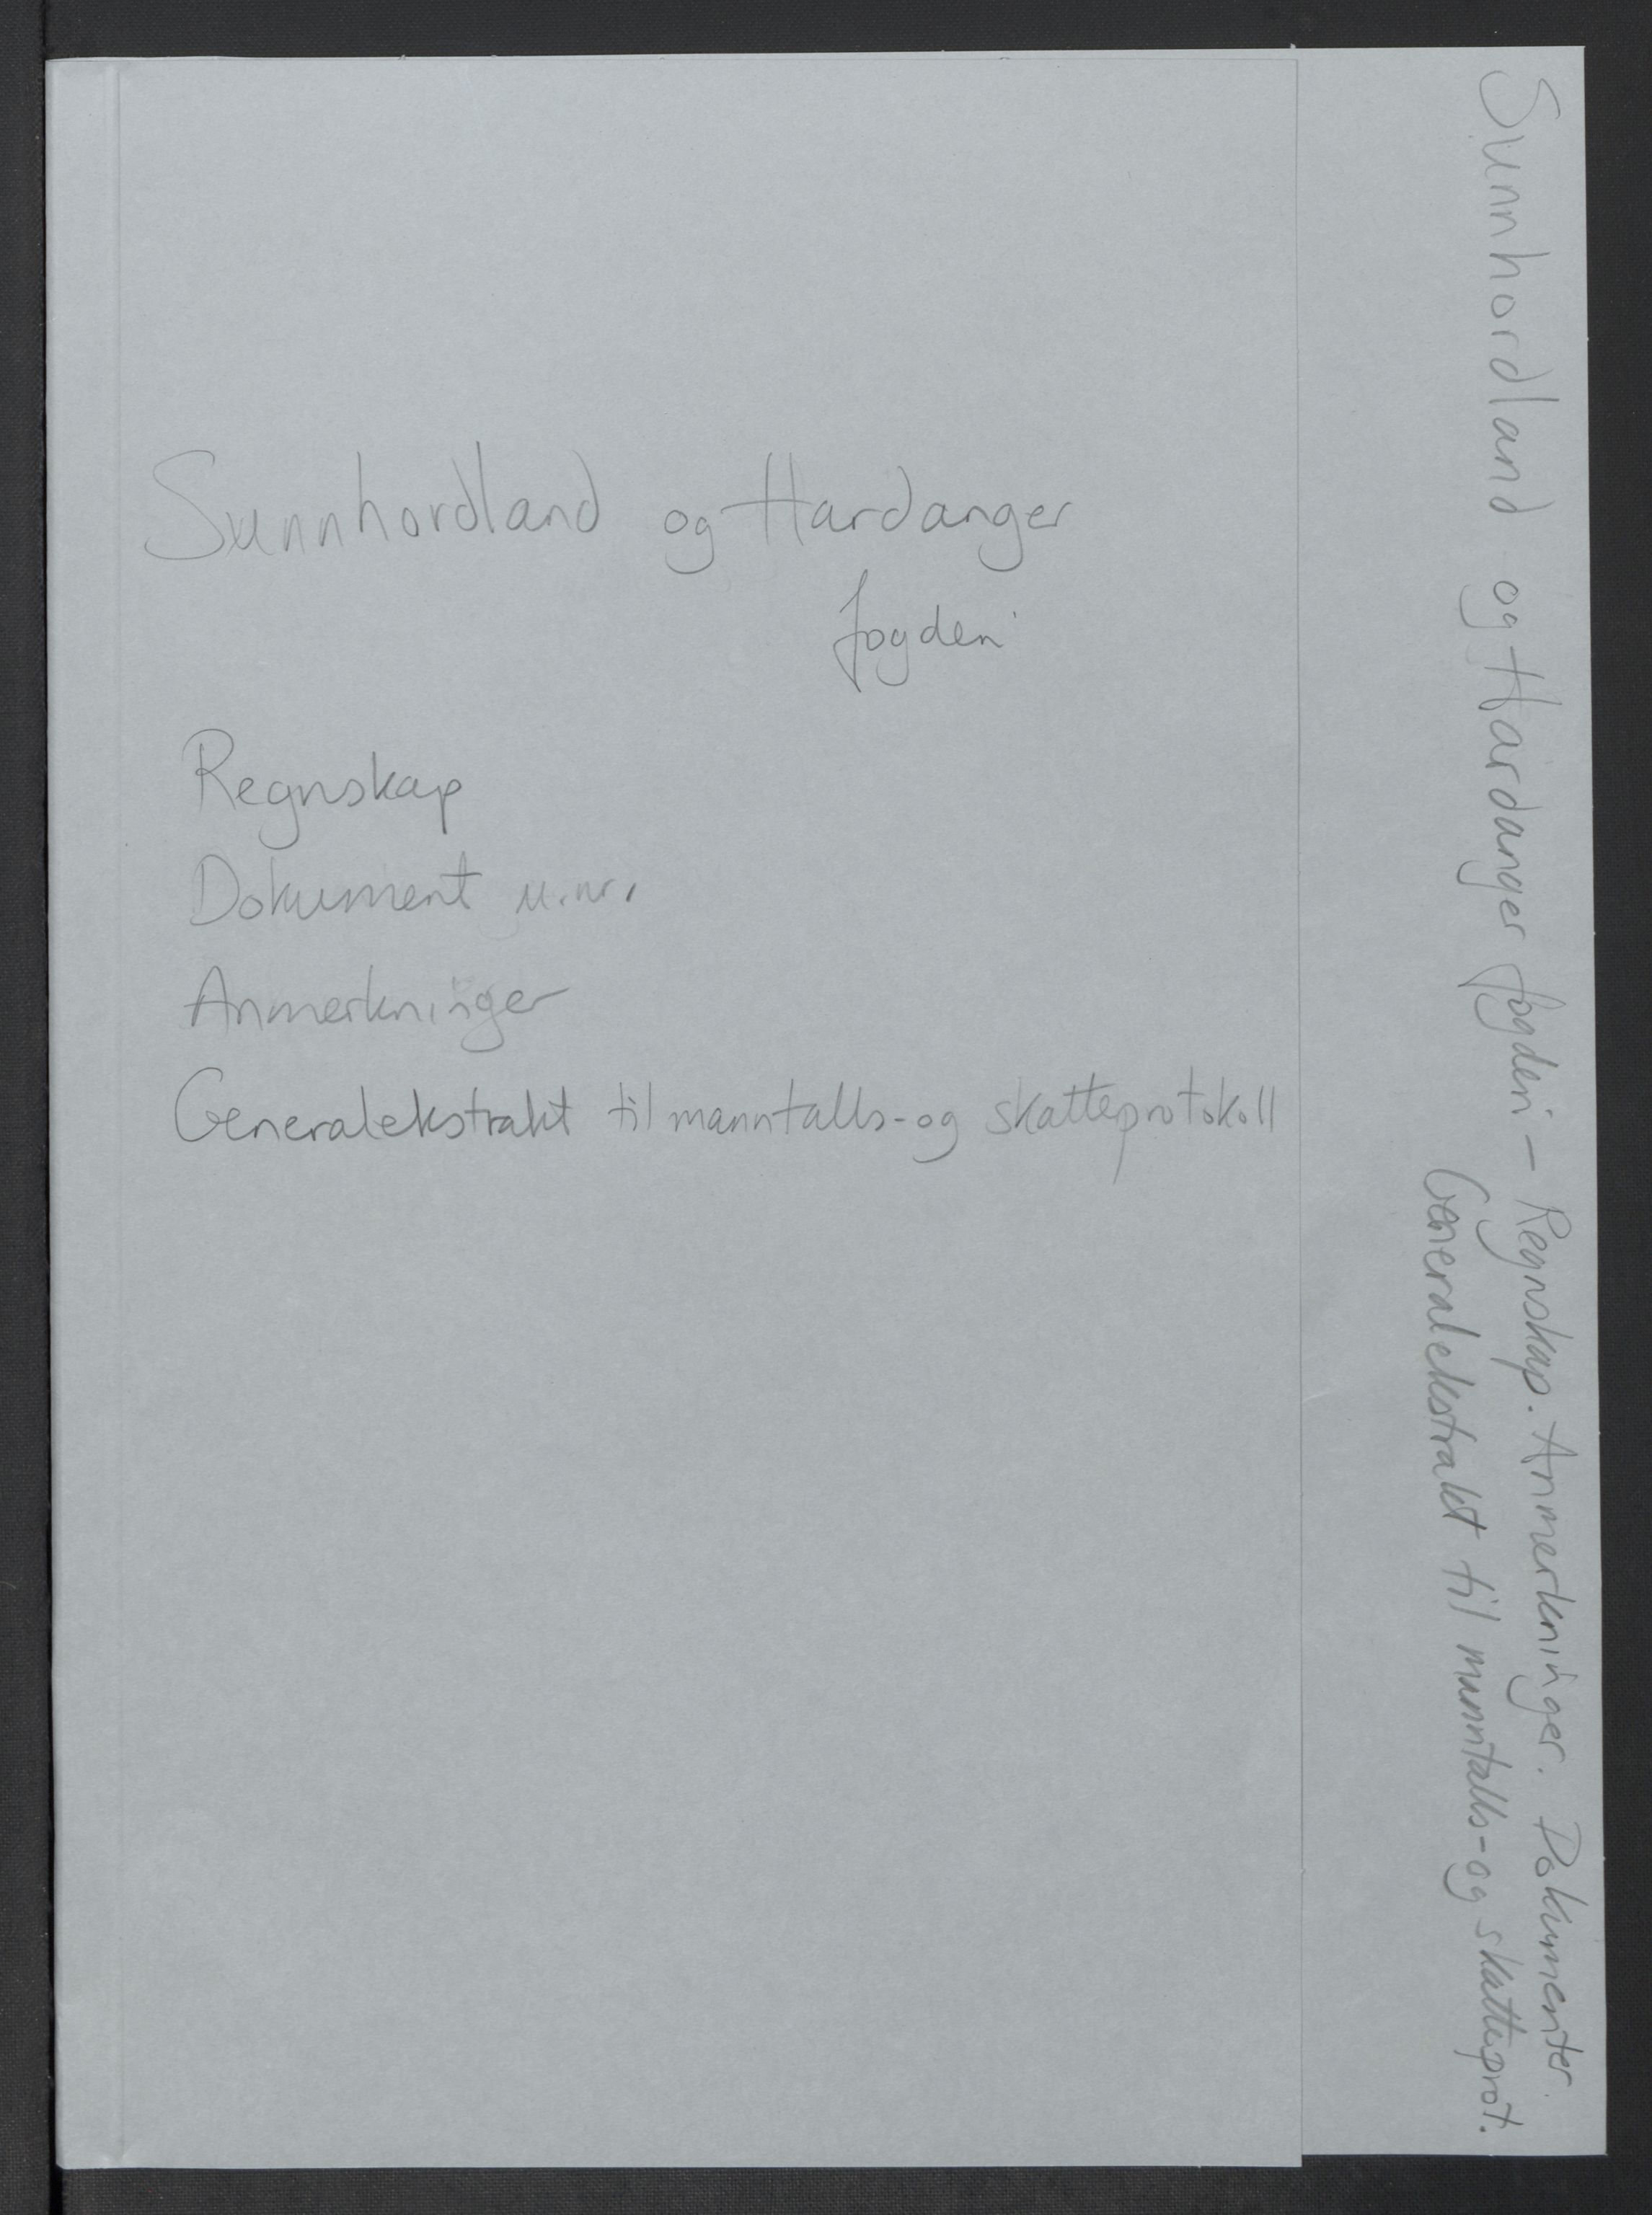 Sunnhordland og Hardanger
fogderi
Regnskap
Dokument u.nr.
Anmerkninger
Generalekstrakt til manntalls-og skatteprotokoll
Sunnhordland og Hardanger fogderi - Regnskap. Anmerkninger. Dokumenter.
Generalekstrakt til manntalls-og skatteprot.